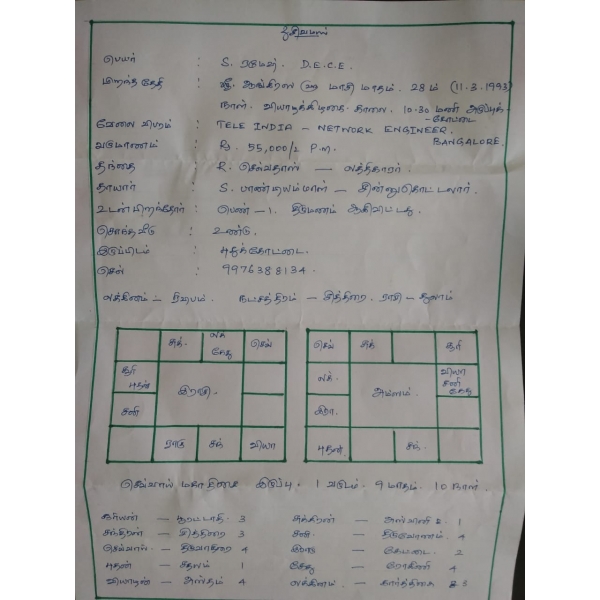 பெயர் : S. ரமேஷ். D.E.C.E.
பிறந்த தேதி : ஸ்ரீ ஆங்கிரஸ மாசி மாதம். 28ம் (11-3-1993)
நாள். வியாழக்கிழமை காலை. 10.30 மணி அறந்தாங்கி
வேலை விபரம் : TELE INDIA - NETWORK ENGINEER.
BANGALORE
வருமானம் : Rs. 55,000/- P.M.
தந்தை : R. செல்வதாஸ் -
தாயார் : S. பாண்டியம்மாள் -
உடன் பிறந்தோர் : பெண் - 1. திருமணம் ஆகிவிட்டது.
சொந்தவீடு : உண்டு.
இருப்பிடம் : புதுக்கோட்டை.
செல் : 9976388134.
லக்கினம் - ரிஷபம். நட்சத்திரம் - சித்திரை. ராசி - துலாம்
சுக். லக் கேது செவ்
சூரி புதன் இராசி
சனி
ராகு சந் வியா
செவ் சுக் சூரி
லக். அம்சம் வியா சனி கேது
இரா.
புதன். சந்.
செவ்வாய் மகா திசை இருப்பு : 1 வருடம். 9 மாதம். 10 நாள்.
சூரியன் - பூரட்டாதி. 3 சுக்கிரன் - அஸ்வினி 1
சந்திரன் - சித்திரை 3 சனி - திருவோணம். 4
செவ்வாய். - திருவாதிரை 4 இராகு - கேட்டை. 2
புதன் - சதயம் 1 கேது - ரோகிணி 4
வியாழன் - அஸ்தம் 4 லக்கினம் - கார்த்திகை 3